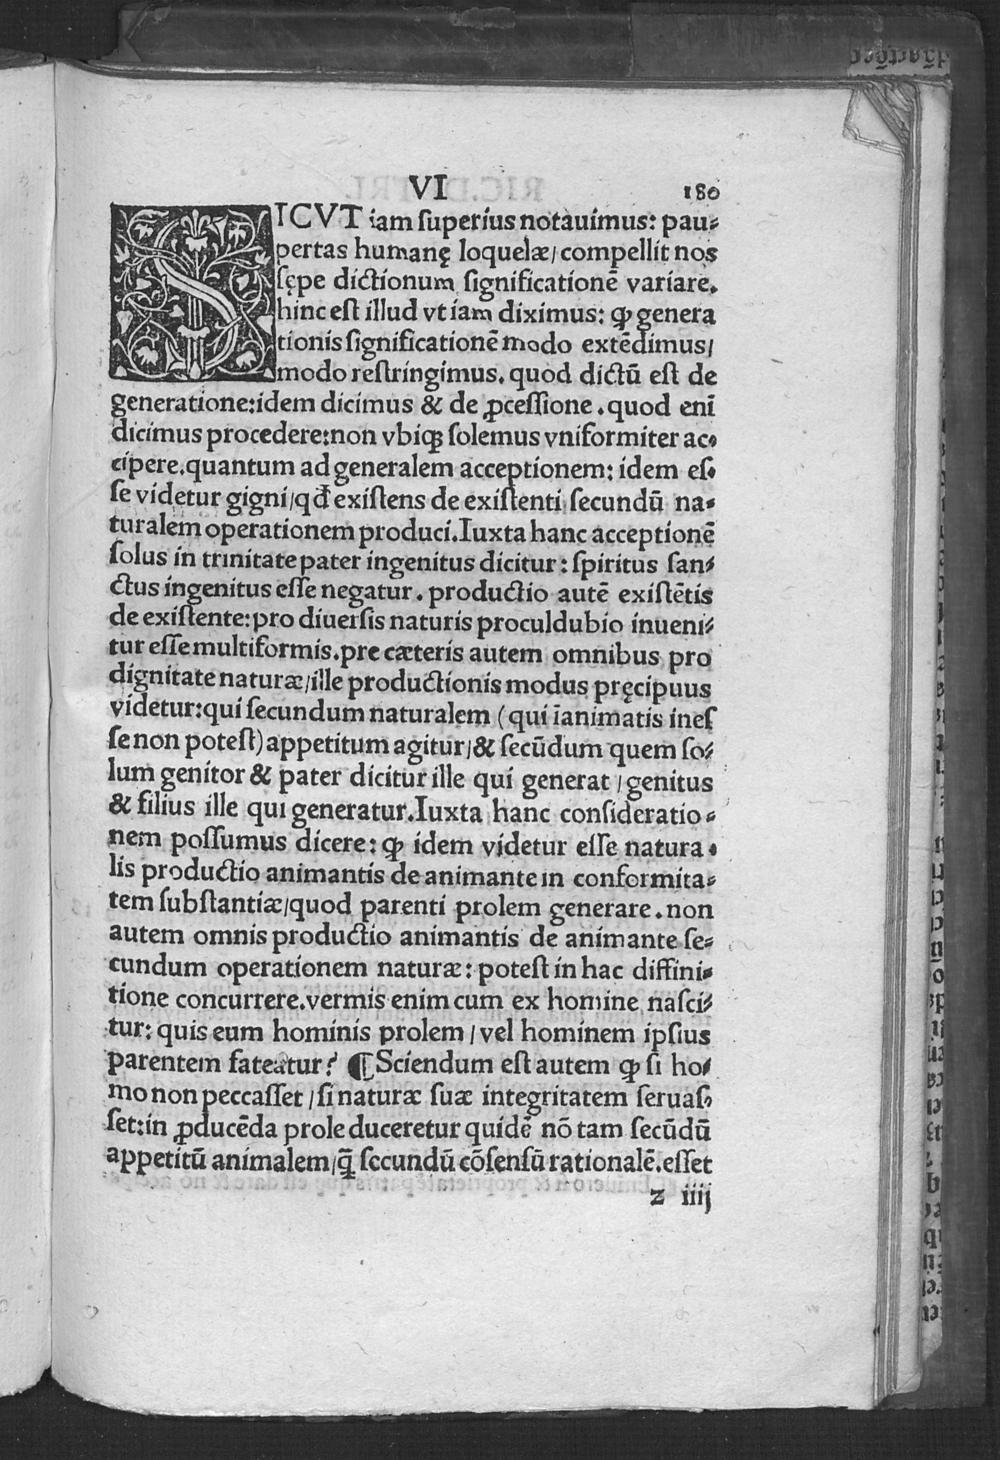 VI 180
SICVT iam ſuperius notauimus: pau⸗
pertas humanę loquelæ/ compellit nos
ſępe dictionum ſignificationē variare.
hinc eſt illud vt iam diximus: ꝙ genera
tionis ſignificationē modo extēdimus/
modo reſtringimus. quod dictū eſt de
generatione: idem dicimus & de ꝓceſſione. quod enī
dicimus procedere: non vbiqꝫ ſolemus vniformiter ac⸗
cipere. quantum ad generalem acceptionem: idem eſ⸗
ſe videtur gigni/ qđ exiſtens de exiſtenti ſecundū na⸗
turalem operationem produci. Iuxta hanc acceptionē
ſolus in trinitate pater ingenitus dicitur: ſpiritus ſan⸗
ctus ingenitus eſſe negatur. productio autē exiſtētis
de exiſtente: pro diuerſis naturis proculdubio inueni⸗
tur eſſe multiformis. pre cæteris autem omnibus pro
dignitate naturæ/ ille productionis modus pręcipuus
videtur: qui ſecundum naturalem (qui īanimatis ineſ
ſe non poteſt) appetitum agitur/ & ſecūdum quem ſo⸗
lum genitor & pater dicitur ille qui generat/ genitus
& filius ille qui generatur. Iuxta hanc conſideratio⸗
nem poſſumus dicere: ꝙ idem videtur eſſe natura⸗
lis productio animantis de animante in conformita⸗
tem ſubſtantiæ/ quod parenti prolem generare. non
autem omnis productio animantis de animante ſe⸗
cundum operationem naturæ: poteſt in hac diffini⸗
tione concurrere. vermis enim cum ex homine naſci⸗
tur: quis eum hominis prolem/ vel hominem ipſius
parentem fateatur? ¶ Sciendum eſt autem ꝙ ſi ho⸗
mo non peccaſſet/ ſi naturæ ſuæ integritatem ſeruaſ⸗
ſet: in ꝓducēda prole duceretur quidē nō tam ſecūdū
appetitū animalem/ q̄ ſecundū cōſenſū rationalē. eſſet
z iiij